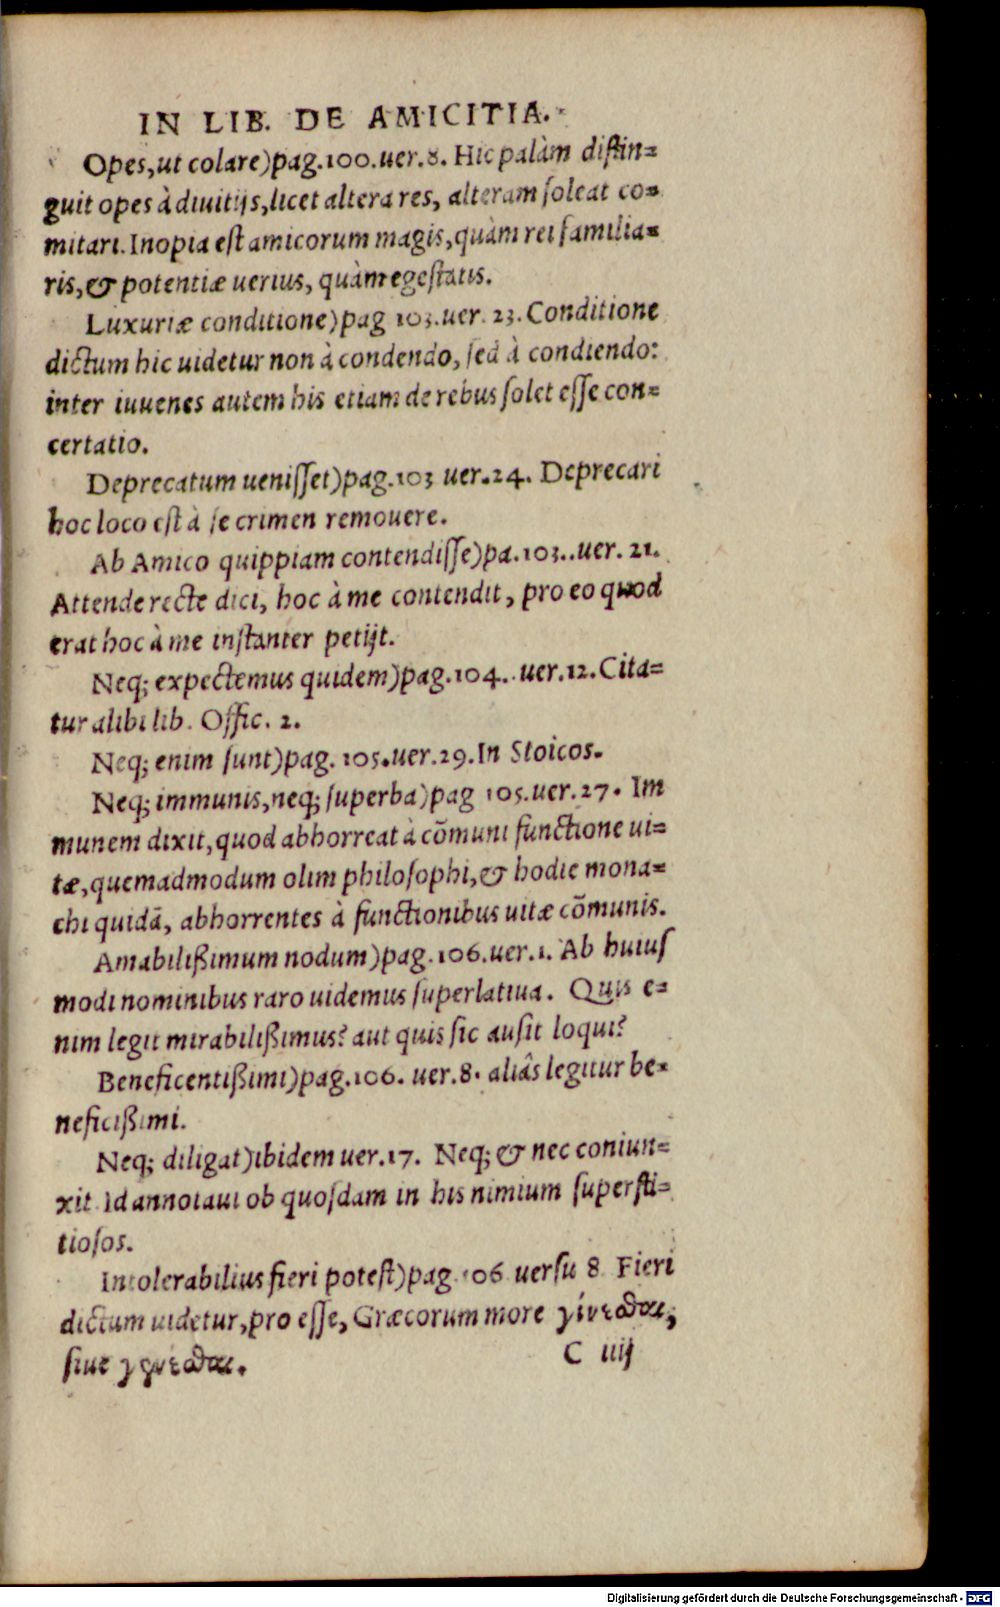 IN LIB. DE AMICITIA.
Opes, ut colare) pag. 100. uer. 8. Hic palàm distin=
guit opes à diuitijs, licet altera res, alteram soleat co=
mitari. Inopia est amicorum magis, quàm rei familia=
ris, & potentiæ uerius, quàm egestatis.
Luxuriæ conditione) pag 103. uer. 23. Conditione
dictum hic uidetur non à condendo, sed à condiendo:
inter iuuenes autem his etiam de rebus solet esse con=
certatio.
Deprecatum uenisset) pag. 103 uer. 24. Deprecari
hoc loco est à se crimen remouere.
Ab Amico quippiam contendisse) pa. 103.. uer. 21.
Attende recte dici, hoc à me contendit, pro eo quod
erat hoc à me instanter petijt.
Neq; expectemus quidem) pag. 104. uer. 12. Cita=
tur alibi lib. Offic. 2.
Neq; enim sunt) pag. 105. uer. 29. In Stoicos.
Neq; immunis, neq; superba) pag 105. uer. 27. Im
munem dixit, quod abhorreat à cõmuni functione ui=
tæ, quemadmodum olim philosophi, & hodie mona=
chi quidã, abhorrentes à functionibus uitæ cõmunis.
Amabilißimum nodum) pag. 106. uer. 1. Ab huius
modi nominibus raro uidemus superlatiua. Quis e=
nim legit mirabilißimus? aut quis sic ausit loqui?
Beneficentißimi) pag. 106. uer. 8. aliâs legitur be=
neficißimi.
Neq; diligat) ibidem uer. 17. Neq; & nec coniun=
xit Id annotaui ob quosdam in his nimium supersti=
tiosos.
Intolerabilius fieri potest) pag 106 uersu 8 Fieri
dictum uidetur, pro esse, Græcorum more γίνεσθαι,
siue γίγνεσθαι.
C iiij
Digitalisierung gefördert durch die Deutsche Forschungsgemeinschaft - DFG